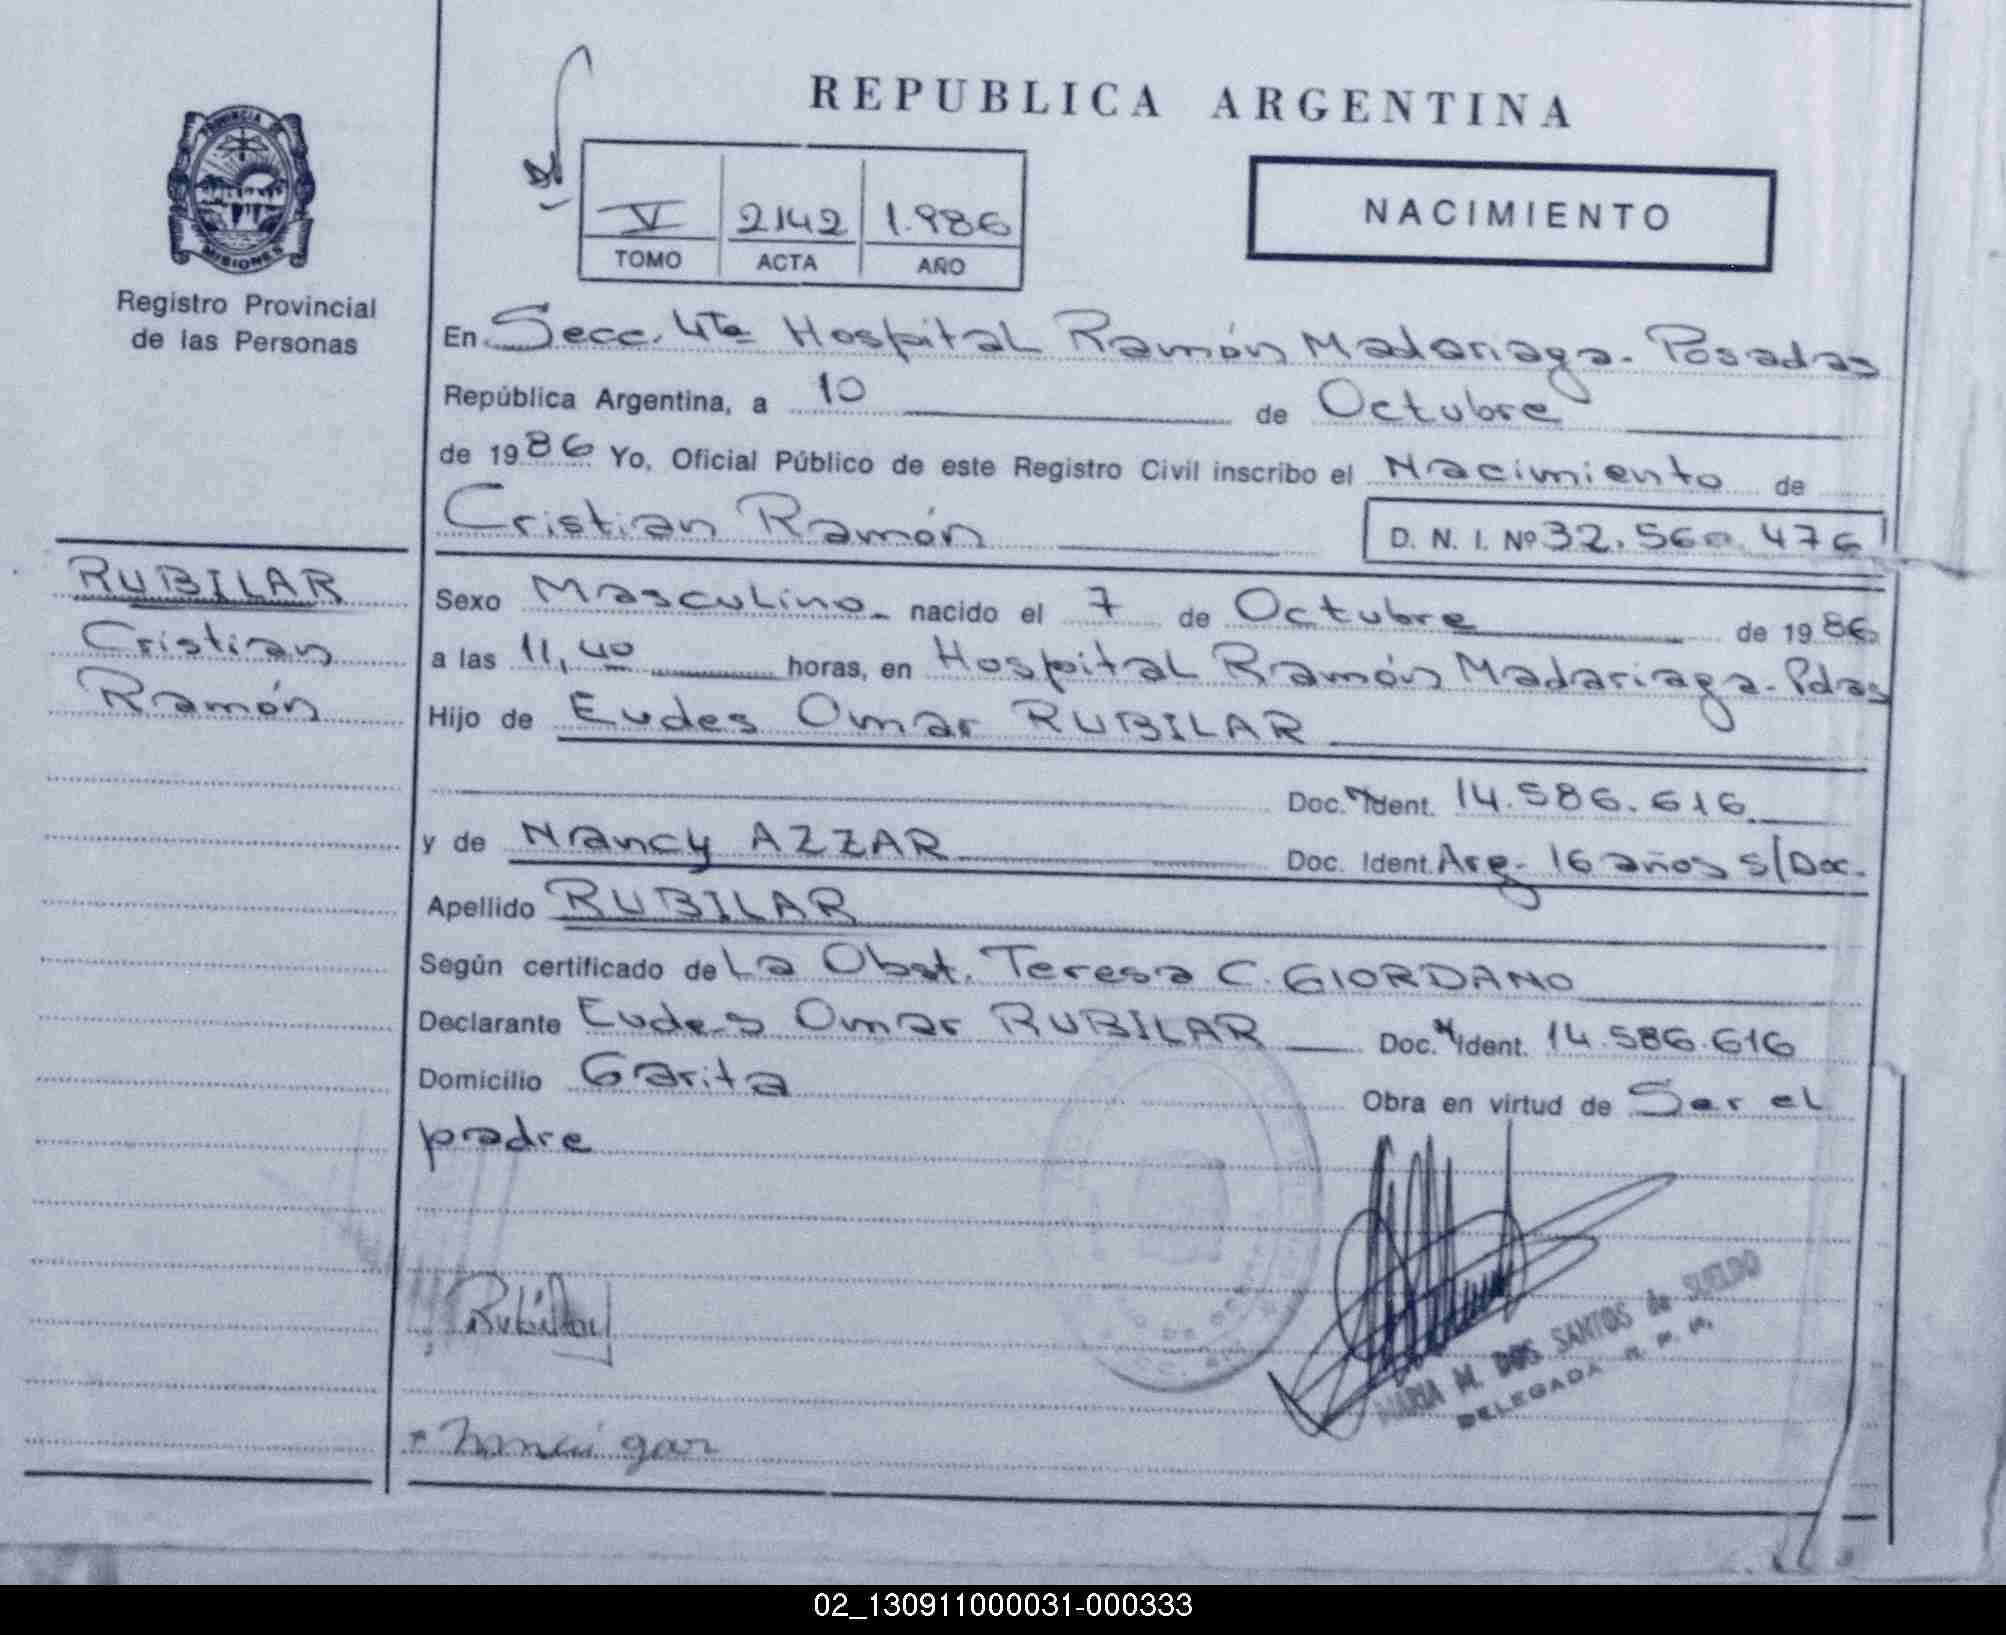 REPUBLICA ARGENTINA
PROVINCIA DE
MISIONES
Registro Provincial
de las Personas
V 2142 1.986
TOMO ACTA AÑO
NACIMIENTO
En Secc. 4ta Hospital Ramón Madariaga - Posadas
República Argentina, a 10 de Octubre
de 1986 Yo, Oficial Público de este Registro Civil inscribo el Nacimiento de
Cristian Ramón D. N. I. Nº 32.560.476
RUBILAR
Cristian
Ramón
Sexo Masculino - nacido el 7 de Octubre de 1986
a las 11,40 horas, en Hospital Ramón Madariaga - Pdas
Hijo de Eudes Omar RUBILAR
Doc. Ident. 14.586.616
y de Nancy AZZAR Doc. Ident. Arg - 16 años s/Doc.
Apellido RUBILAR
Según certificado de La Obst. Teresa C. GIORDANO
Declarante Eudes Omar RUBILAR Doc. Ident. 14.586.616
Domicilio Garita Obra en virtud de Ser el
padre
MARIA M. DOS SANTOS de SUELDO
DELEGADA
02_130911000031-000333